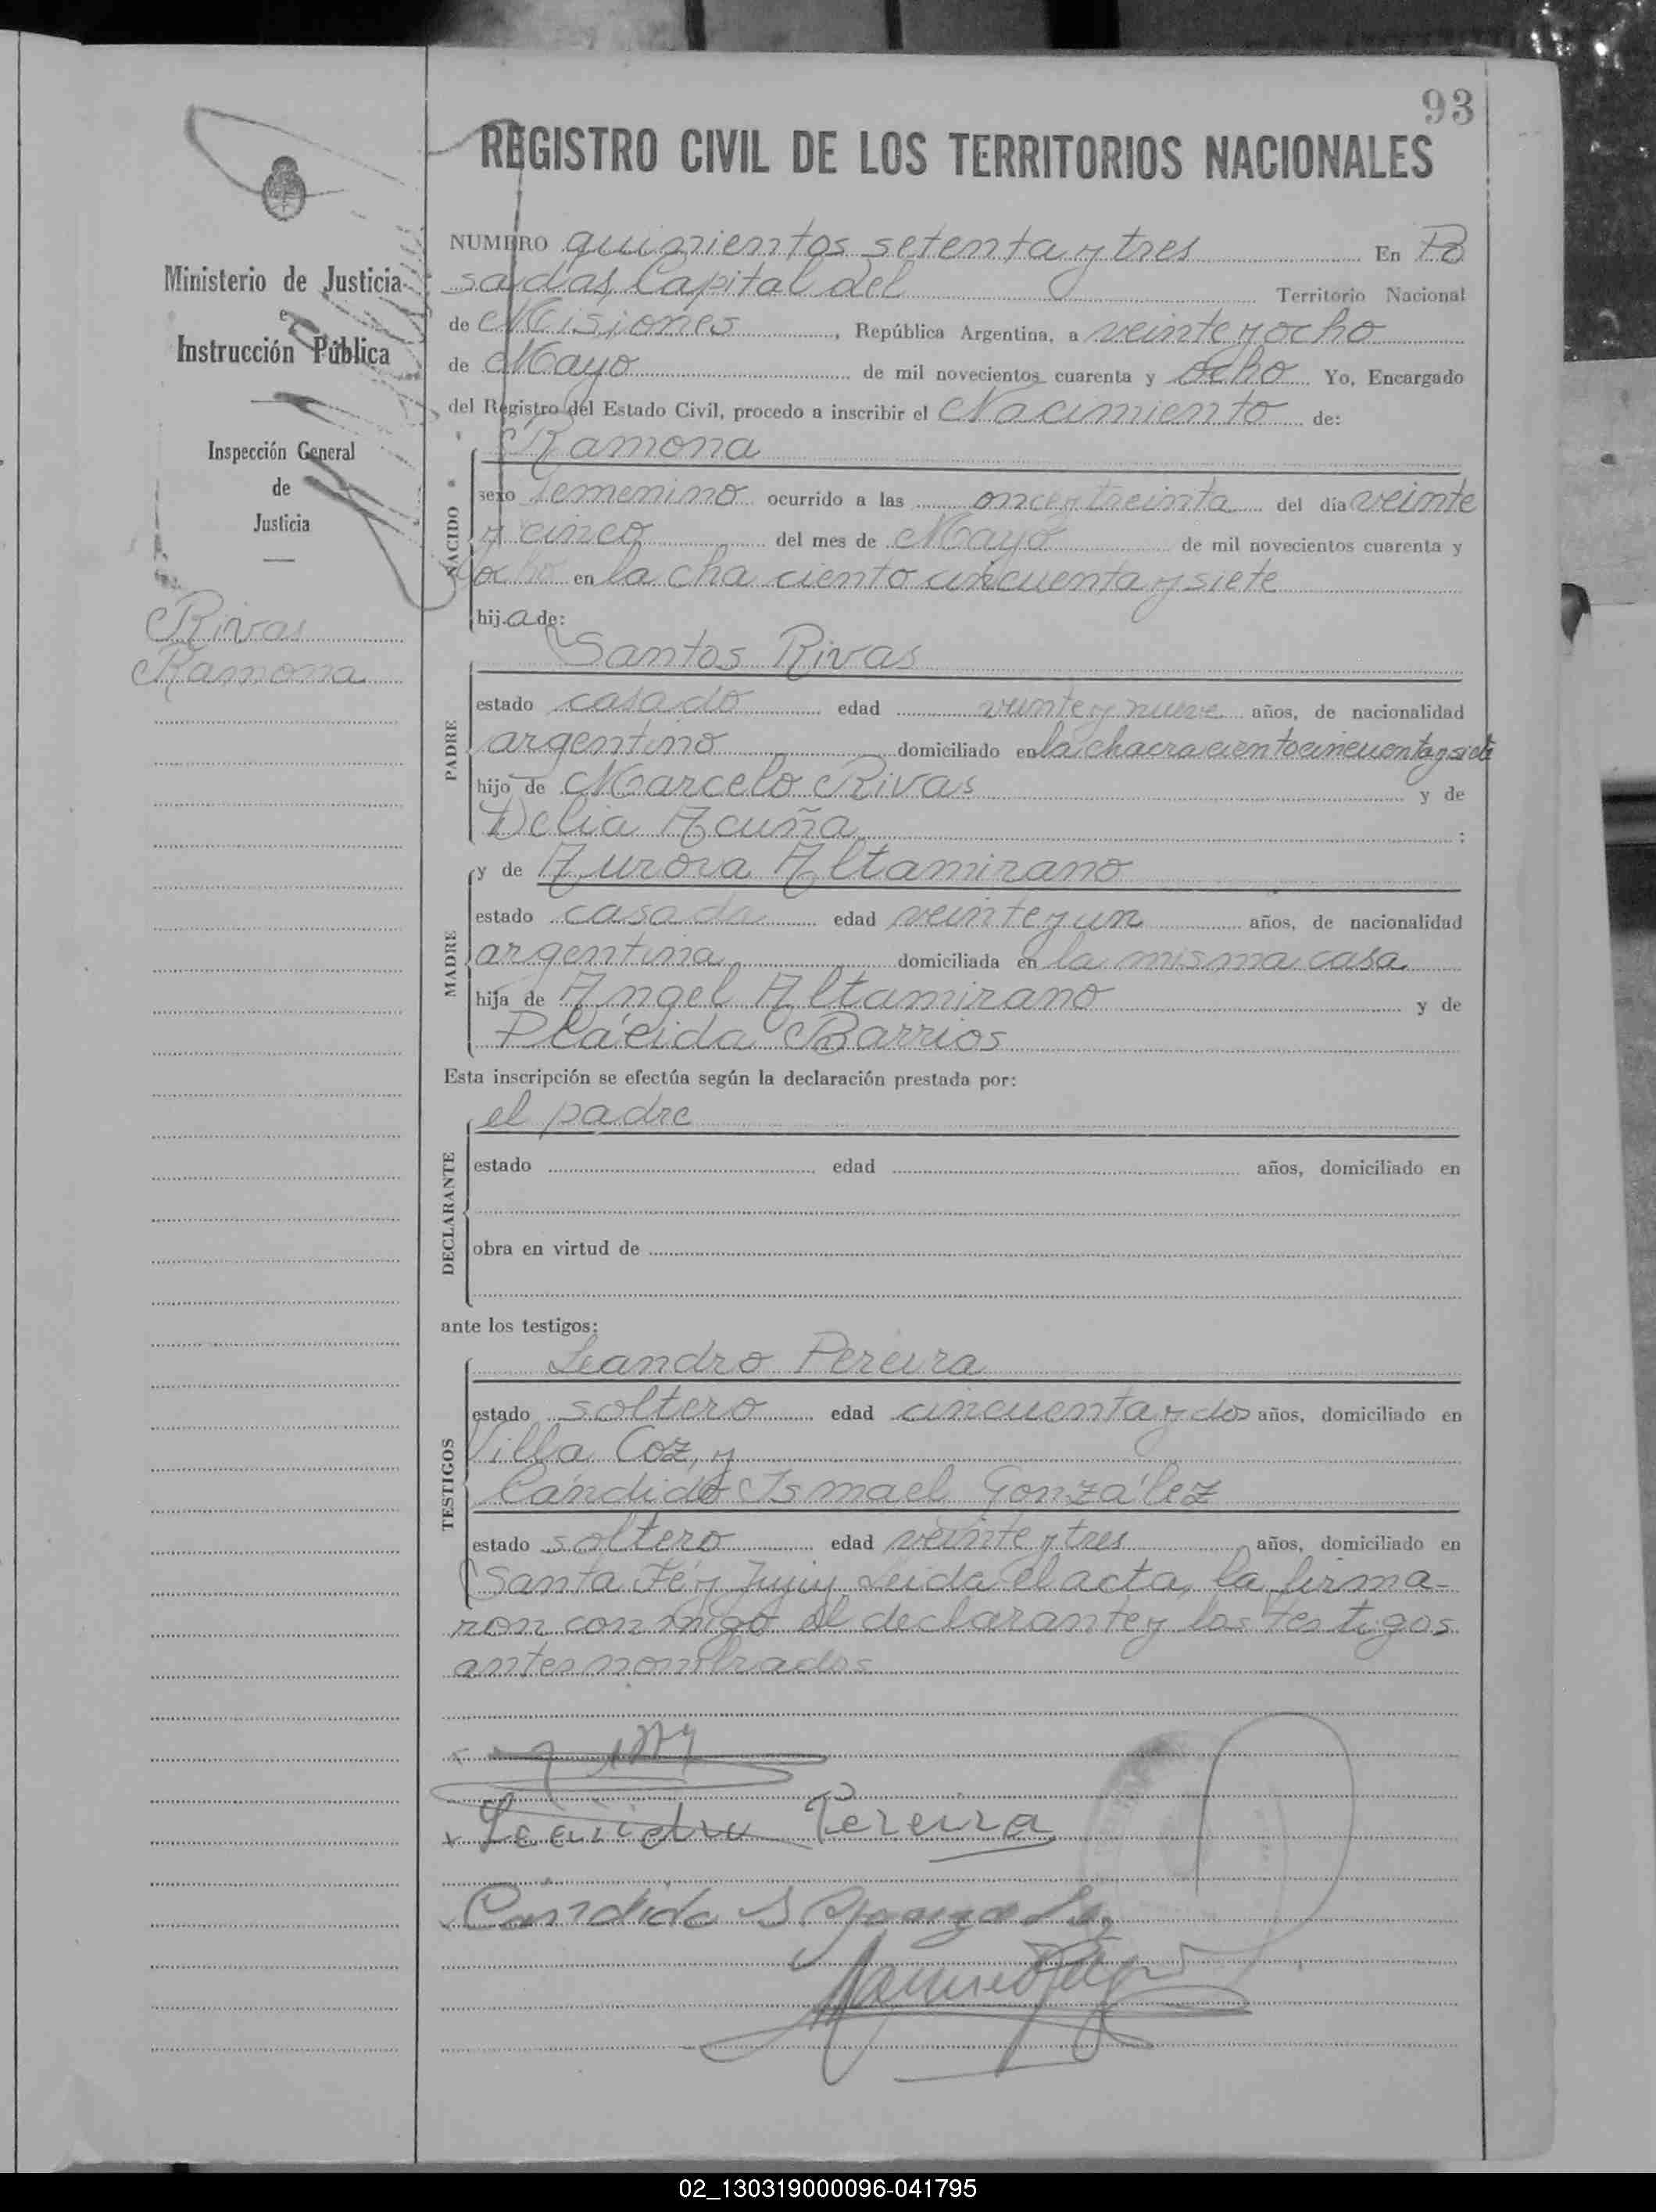 93
REGISTRO CIVIL DE LOS TERRITORIOS NACIONALES
NUMERO quinientos setenta y tres En Po
sadas, Capital del Territorio Nacional
de Misiones, República Argentina, a veinte y ocho
de Mayo de mil novecientos cuarenta y ocho Yo, Encargado
del Registro del Estado Civil, procedo a inscribir el Nacimiento de:
Ramona
NACIDO
sexo femenino ocurrido a las once y treinta del día veinte
y cinco del mes de Mayo de mil novecientos cuarenta y
ocho en la cha ciento cincuenta y siete
hija de:
Santos Rivas
PADRE
estado casado edad veinte y nueve años, de nacionalidad
argentino domiciliado en la chacra ciento cincuenta y siete
hijo de Marcelo Rivas y de
Delia Acuña :
y de Aurora Altamirano
MADRE
estado casada edad veinte y un años, de nacionalidad
argentina domiciliada en la misma casa
hija de Angel Altamirano y de
Plácida Barrios
Esta inscripción se efectúa según la declaración prestada por:
el padre
DECLARANTE
estado edad años, domiciliado en
obra en virtud de
ante los testigos:
Leandro Pereira
TESTIGOS
estado soltero edad cincuenta y dos años, domiciliado en
Villa Coz, y
Cándido Ismael González
estado soltero edad veinte y tres años, domiciliado en
Santa Fé y Jujuy. Leida el acta, la firma-
ron conmigo el declarante y los testigos
antes nombrados
Leandro Pereira
Cándido I Gonzalez
Ministerio de Justicia
e
Instrucción Pública
Inspección General
de
Justicia
Rivas
Ramona
02_130319000096-041795